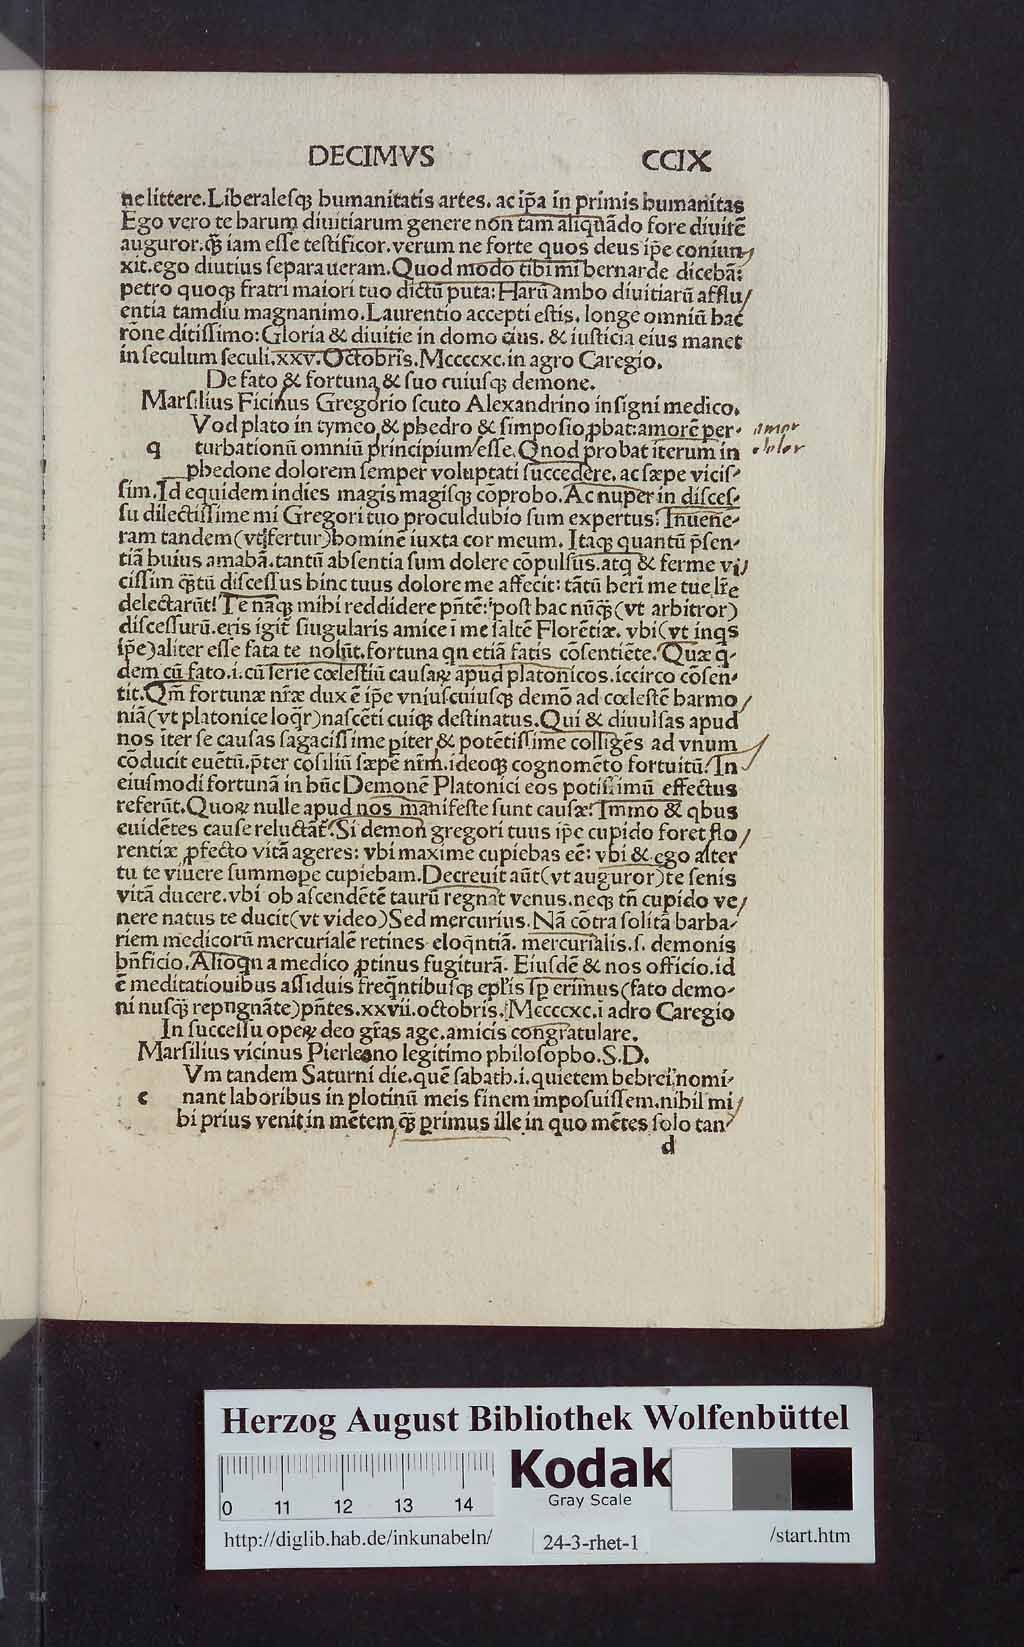 DECIMVS CCIX
ne littere.Liberalesq; humanitatis artes. ac ip̃a in primis humanitas
Ego vero te harum diuitiarum genere non tam aliquãdo fore diuitẽ
auguror.q̃ iam esse testificor.verum ne forte quos deus ip̃e coniun
xit.ego diutius separaueram.Quod modo tibi mi bernarde dicebã:
petro quoq; fratri maiori tuo dictũ puta: Harũ ambo diuitiarũ afflu
entia tamdiu magnanimo.Laurentio accepti estis. longe omniũ hac
rõne ditissimo: Gloria & diuitie in domo eius. & iusticia eius manet
in seculum seculi.xxv.Octobris.Mccccxc.in agro Caregio.
De fato & fortuna & suo cuiusq; demone.
Marsilius Ficinus Gregorio scuto Alexandrino insigni medico.
Vod plato in tymeo & phedro & simposio ꝓbat:amorẽ per-
amor
q turbationũ omniũ principium esse.Qnod probat iterum in
dolor
phedone dolorem semper voluptati succedere. ac sæpe vicis-
sim.Id equidem indies magis magisq; coprobo.Ac nuper in disces-
su dilectissime mi Gregori tuo proculdubio sum expertus: Inuene-
ram tandem (vt fertur)hominẽ iuxta cor meum. Itaq; quantũ p̃sen-
tiã huius amabã.tantũ absentia sum dolere cõpulsus.atq & ferme vi
cissim q̃tũ discessus hinc tuus dolore me affecit: tãtũ heri me tue lr̃e
delectarũt! Te nãq; mihi reddidere pñtẽ: post hac nũq̃(vt arbitror)
discessurũ.eris igit̃ siugularis amice ĩ me saltẽ Florẽtiæ. vbi(vt inqs
ip̃e)aliter esse fata te nolũt.fortuna qn etiã fatis cõsentiẽte. Quæ q-
dem cũ fato.i.cũ serie cœlestiũ causaꝝ apud platonicos.iccirco cõsen-
tit.Qm̃ fortunæ nr̃æ dux ẽ ip̃e vniuscuiusq; demõ ad cœlestẽ harmo
niã(vt platonice loq̃r)nascẽti cuiq; destinatus.Qui & diuulsas apud
nos ĩter se causas sagacissime piter & potẽtissime colligẽs ad vnum
cõducit euẽtũ.p̃ter cõsiliũ sæpẽ nr̃m.ideoq; cognomẽto fortuitũ. In
eiusmodi fortunã in hũc Demonẽ Platonici eos potissimũ effectus
referũt.Quoꝝ nulle apud nos manifeste sunt causæ! Immo & qbus
euidẽtes cause reluctãt̃. Si demon gregori tuus ip̃e cupido foret flo
rentiæ ꝓfecto vitã ageres: vbi maxime cupiebas eẽ: vbi & ego alter
tu te viuere summope cupiebam.Decreuit aũt(vt auguror)te senis
vitã ducere.vbi ob ascendẽtẽ taurũ regnat venus.neq; tñ cupido ve
nere natus te ducit(vt video)Sed mercurius.Nã cõtra solitã barba-
riem medicorũ mercurialẽ retines eloq̃ntiã. mercurialis.s. demonis
bñficio.Alioqn a medico ꝓtinus fugiturã. Eiusdẽ & nos officio.id
ẽ meditatiouibus assiduis freq̃ntibusq; epl'is sp̱ erimus(fato demo-
ni nusq̃ repngnãte)pñtes.xxvii.octobris. Mccccxc.ĩ adro Caregio
In successu opeꝝ deo gr̃as age.amicis congratulare.
Marsilius vicinus Pierleono legitimo philosopho.S.D.
Vm tandem Saturni die.quẽ sabath.i.quietem hebrei nomi-
c nant laboribus in plotinũ meis finem imposuissem.nihil mi
hi prius venit in mẽtem q̃ primus ille in quo mẽtes solo tan-
d
Herzog August Bibliothek Wolfenbüttel
0 11 12 13 14
Kodak
Gray Scale
http://diglib.hab.de/inkunabeln/ 24-3-rhet-1 /start.htm